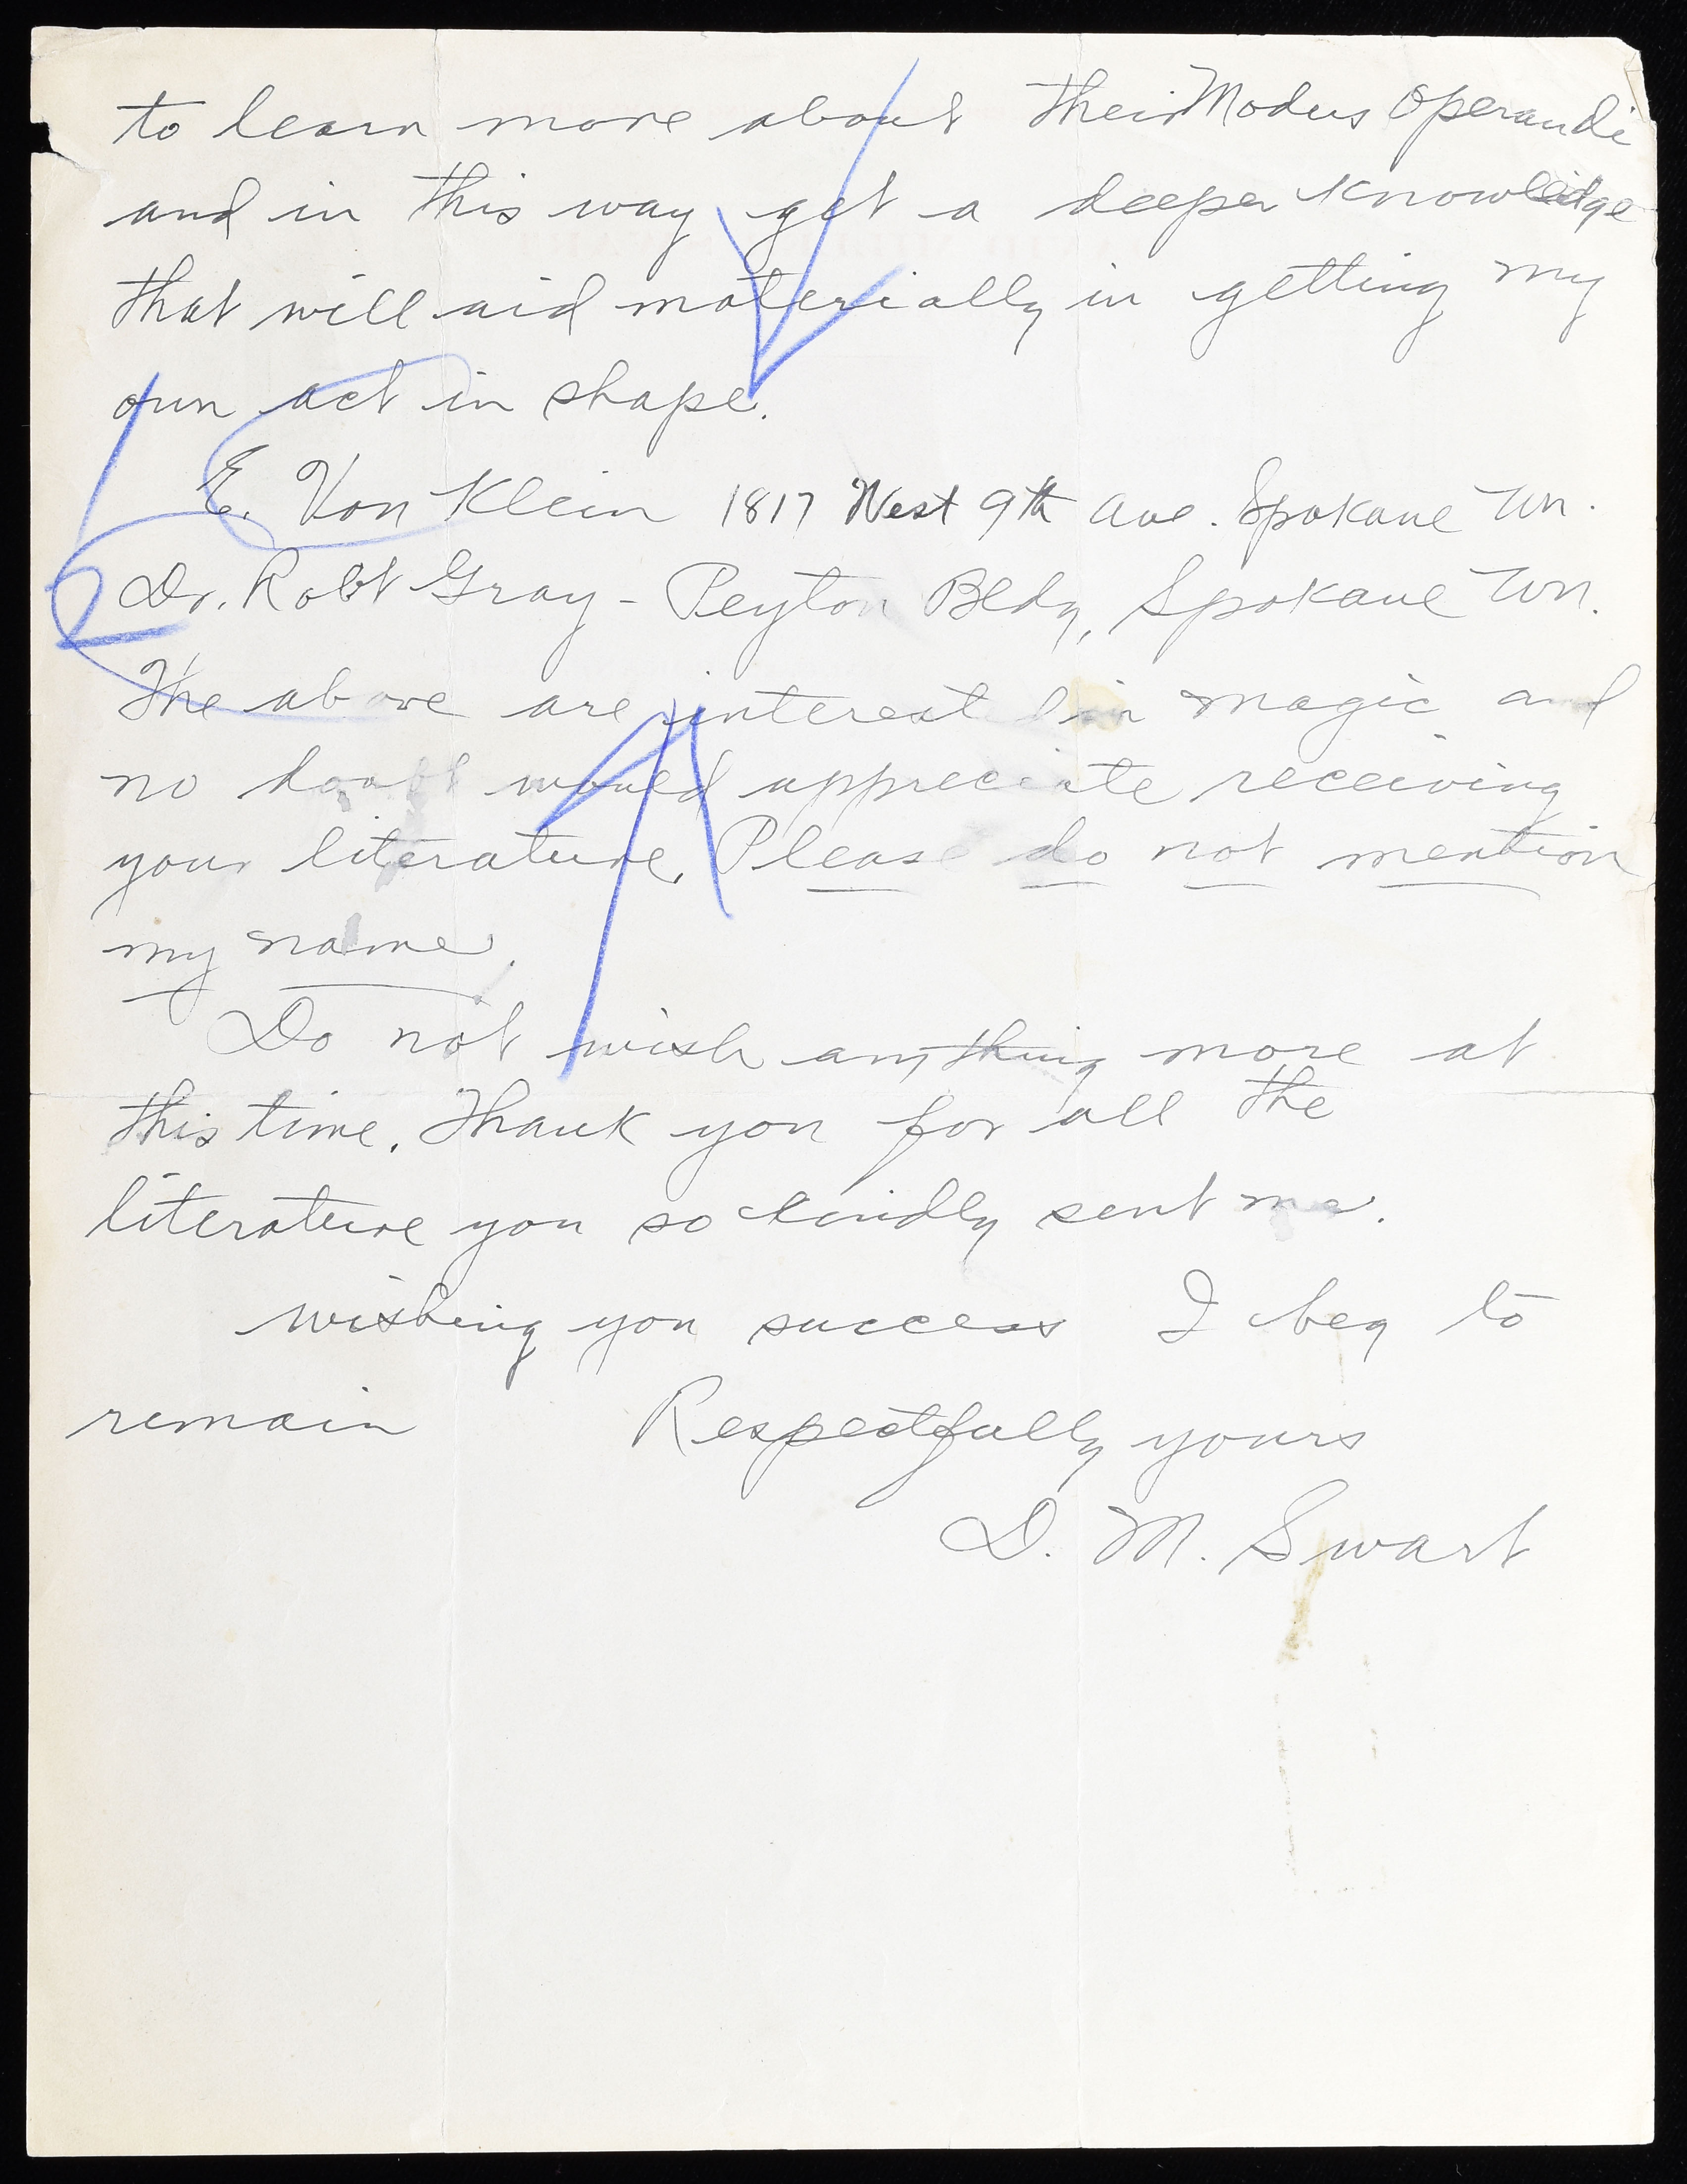 to learn more about their Modus Operandi
and in this way get a deeper knowledge
that will aid materially in getting my
own act in shape.
E. Von Klein 1817 West 9th Ave. Spokane Wn.
Dr. Robt Gray - Peyton Bldg, Spokane Wn.
The above are interested in magic and
no doubt would appreciate receiving
your literature. Please do not mention
my name.
Do not wish anything more at
this time. Thank you for all the
literature you so kindly sent me.
Wishing you success I beg to
remain Respectfully yours
D. M. Swart